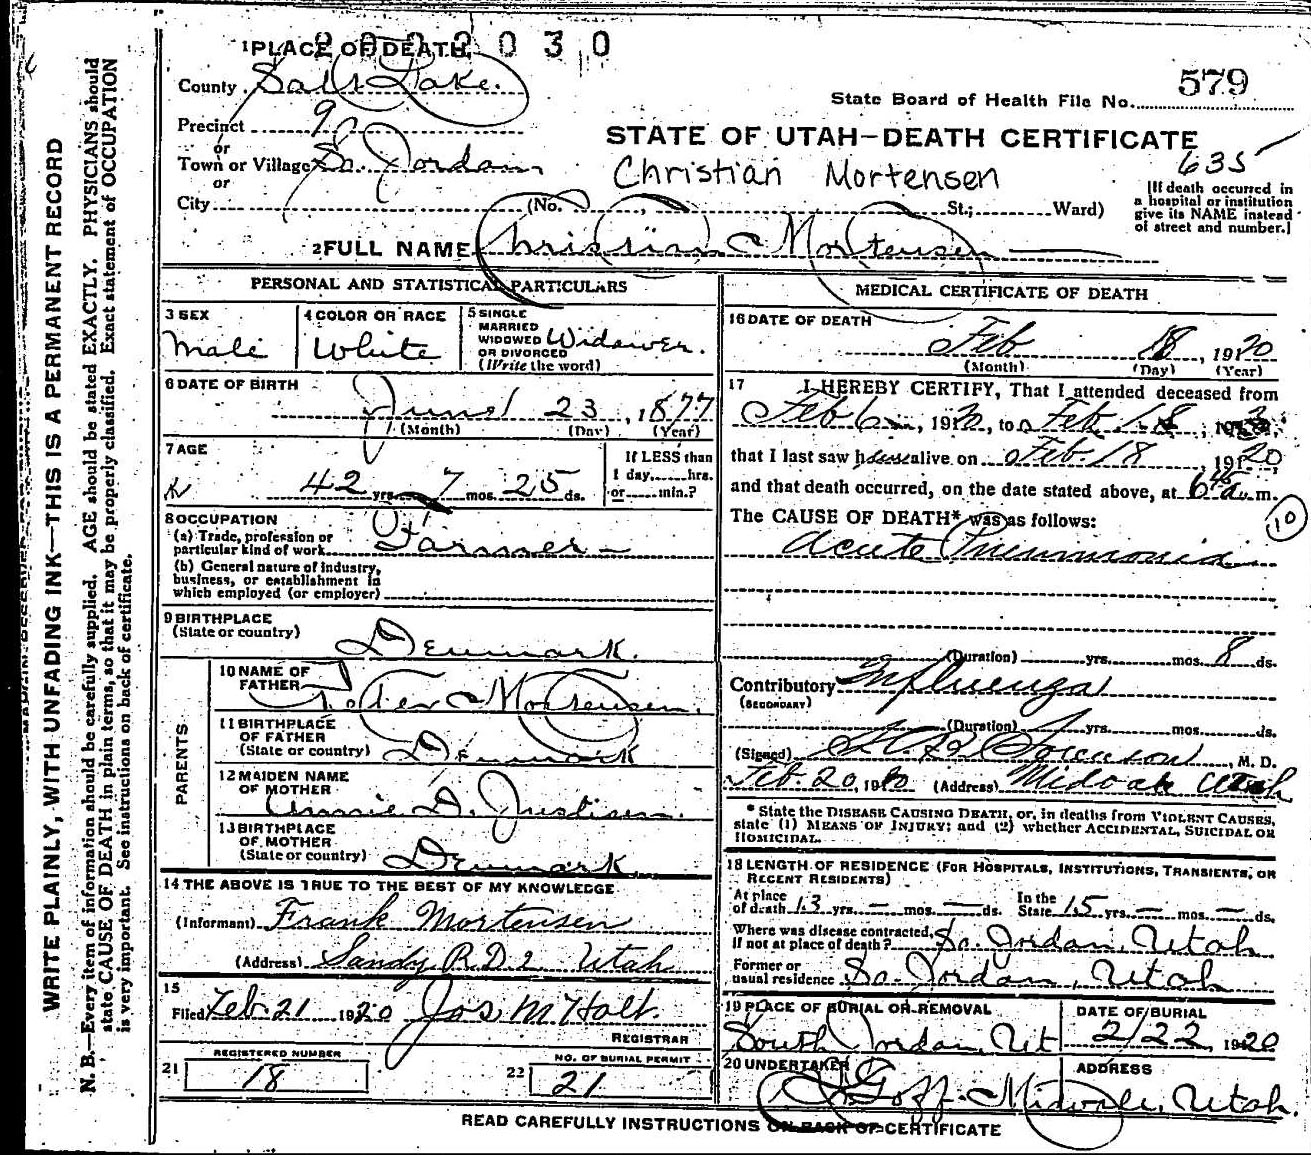 2022030
1 PLACE OF DEATH
County Salt Lake.
State Board of Health File No. 579
Precinct 9
or
Town or Village So. Jordan
or
City (No. , St.; Ward)
STATE OF UTAH—DEATH CERTIFICATE
635
Christian Mortensen
[If death occurred in
a hospital or institution
give its NAME instead
of street and number.]
2 FULL NAME Christian Mortensen
PERSONAL AND STATISTICAL PARTICULARS
3 SEX
Male
4 COLOR OR RACE
White
5 SINGLE
MARRIED
WIDOWED
OR DIVORCED
(Write the word)
Widower.
6 DATE OF BIRTH
June 23, 1877
(Month) (Day) (Year)
7 AGE
42 yrs. 7 mos. 25 ds.
If LESS than
1 day, hrs.
or min.?
8 OCCUPATION
(a) Trade, profession or
particular kind of work Farmer
(b) General nature of industry,
business, or establishment in
which employed (or employer)
9 BIRTHPLACE
(State or country)
Denmark.
PARENTS
10 NAME OF
FATHER Peter Mortensen.
11 BIRTHPLACE
OF FATHER
(State or country) Denmark
12 MAIDEN NAME
OF MOTHER
Annie D. Justisen.
13 BIRTHPLACE
OF MOTHER
(State or country) Denmark
14 THE ABOVE IS TRUE TO THE BEST OF MY KNOWLEDGE
(Informant) Frank Mortensen
(Address) Sandy R.D.2 Utah
15
Filed Feb. 21 1920 Jos. M Holt.
REGISTRAR
21 REGISTERED NUMBER
18
22 NO. OF BURIAL PERMIT
21
MEDICAL CERTIFICATE OF DEATH
16 DATE OF DEATH
Feb 18, 1920
(Month) (Day) (Year)
17 I HEREBY CERTIFY, That I attended deceased from
Feb 6, 1920, to Feb. 18, 19
that I last saw h alive on Feb. 18, 1920,
and that death occurred, on the date stated above, at 6 45 a. m.
The CAUSE OF DEATH* was as follows:
10
Acute Pneumonia
(Duration) yrs. mos. 8 ds.
Contributory Influenza
(SECONDARY)
(Duration) yrs. mos. ds.
(Signed) Sorenson, M. D.
Feb. 20, 1920 (Address) Midvale Utah
* State the DISEASE CAUSING DEATH, or, in deaths from VIOLENT CAUSES,
state (1) MEANS OF INJURY; and (2) whether ACCIDENTAL, SUICIDAL OR
HOMICIDAL.
18 LENGTH OF RESIDENCE (FOR HOSPITALS, INSTITUTIONS, TRANSIENTS, OR
RECENT RESIDENTS)
At place
of death 13 yrs. — mos. — ds.
In the
State 15 yrs. — mos. — ds.
Where was disease contracted,
if not at place of death? So. Jordan, Utah
Former or
usual residence So. Jordan, Utah
19 PLACE OF BURIAL OR REMOVAL
South Jordan, Ut
DATE OF BURIAL
2/22, 1920
20 UNDERTAKER
Goff
ADDRESS
Midvale, Utah.
READ CAREFULLY INSTRUCTIONS ON BACK OF CERTIFICATE
WRITE PLAINLY, WITH UNFADING INK—THIS IS A PERMANENT RECORD
N. B.—Every item of information should be carefully supplied. AGE should be stated EXACTLY. PHYSICIANS should
state CAUSE OF DEATH in plain terms, so that it may be properly classified. Exact statement of OCCUPATION
is very important. See instructions on back of certificate.